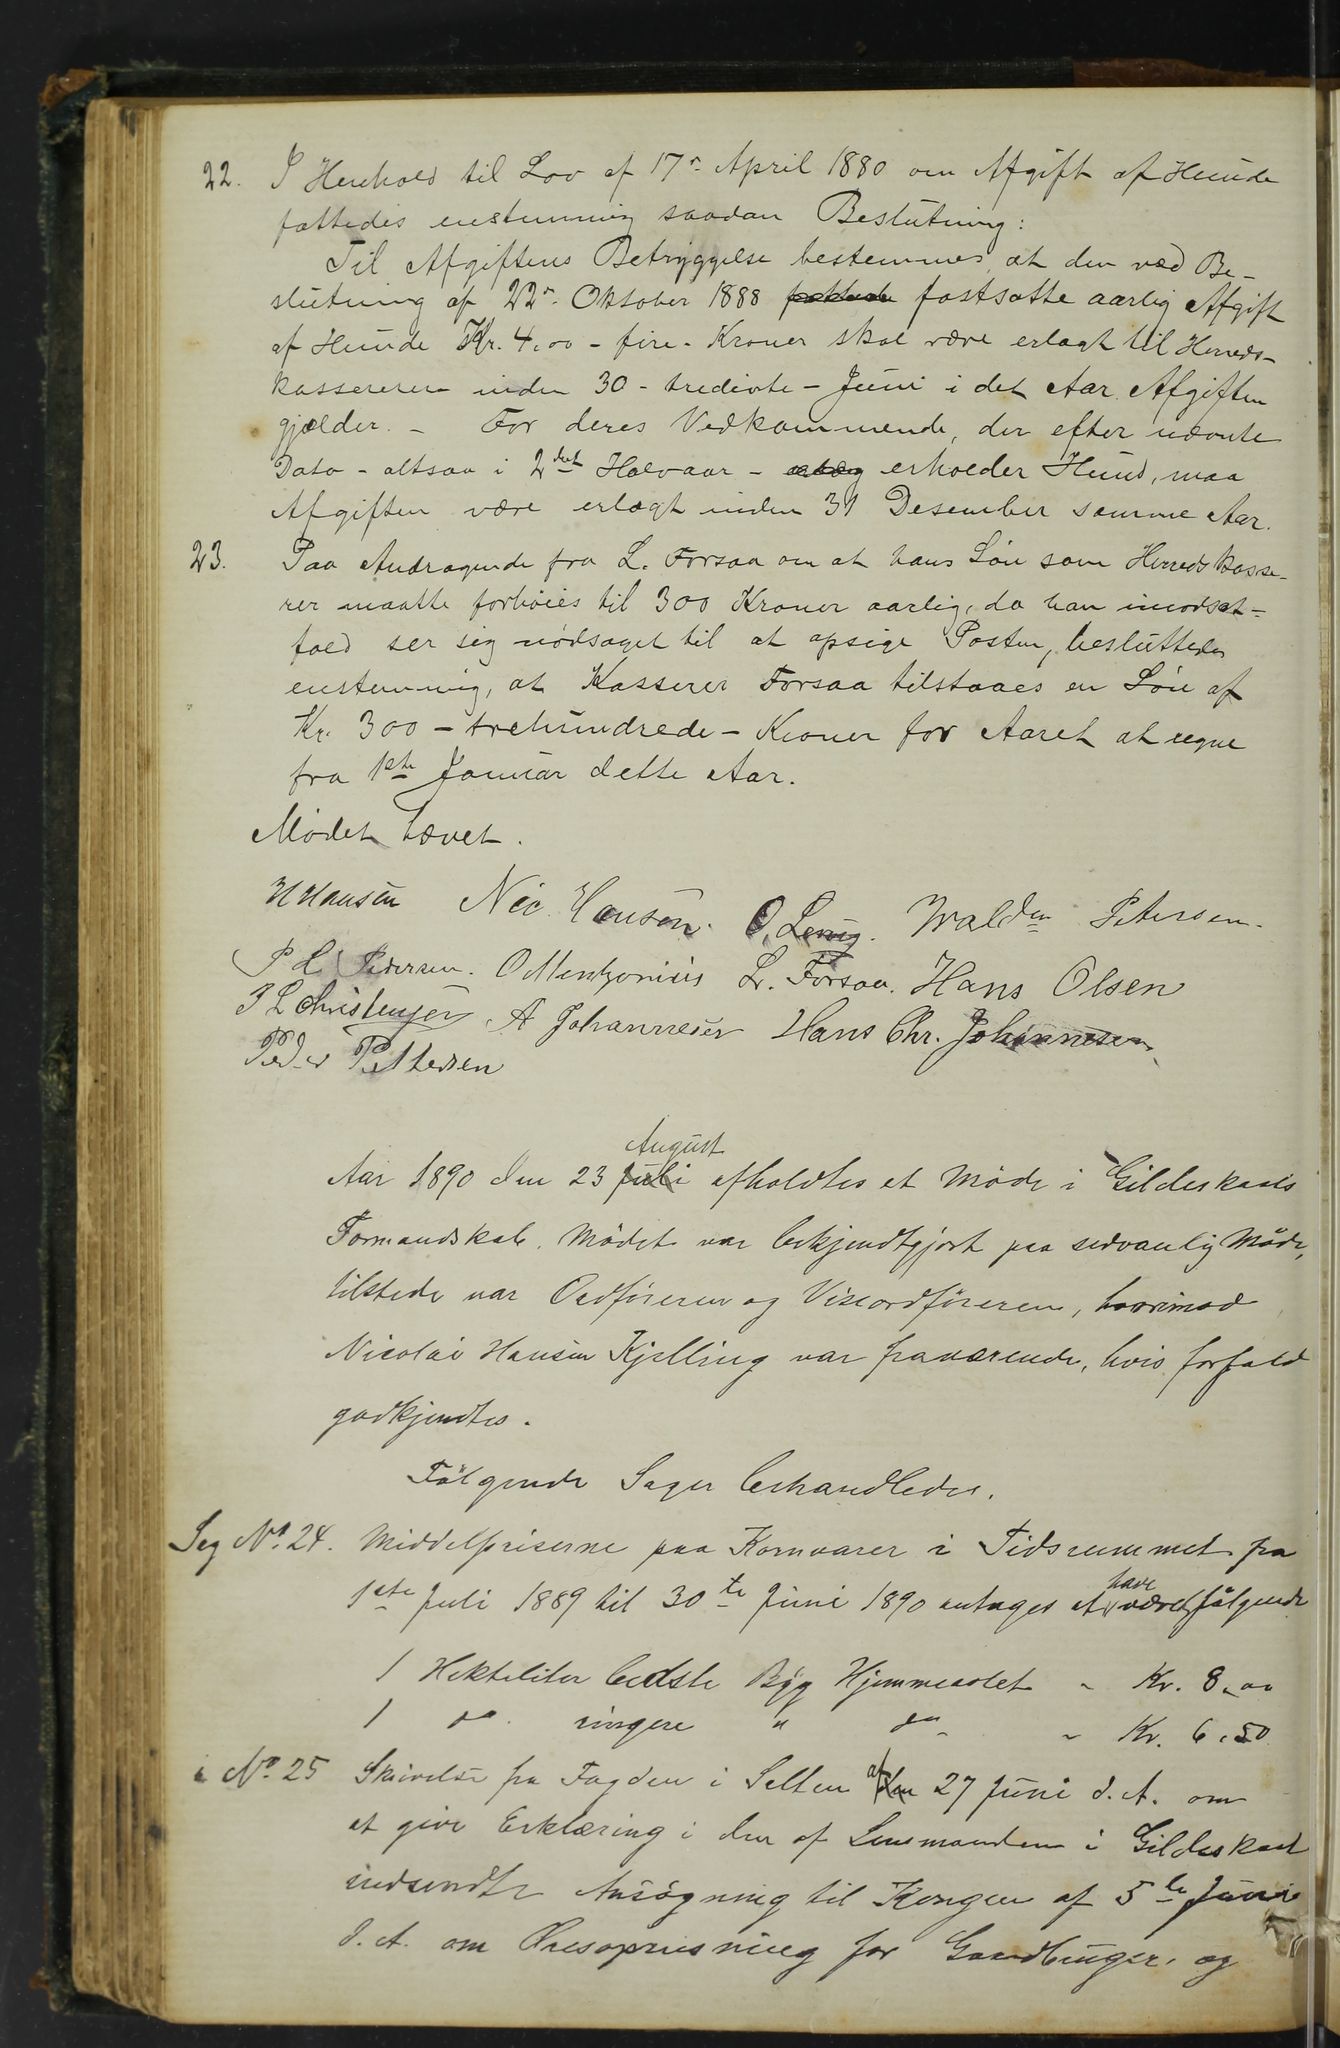 22. I Henhold til Lov af 17n April 1880 om Afgift af Hunde
fattedes enstemmig saadan Beslutning:
Til Afgiftens Betryggelse bestemmes, at den ved Be-
slutning af 22n Oktober 1888 fastsatte aarlig Afgift
af Hunde Kr. 4.00 - fire - Kroner skal være erlagt til Herreds-
kassereren inden 30 - tredivte - Juni i det Aar Afgiften
gjælder. - For deres Vedkommende, der efter nævnte
Dato - altsaa i 2det Halvaar - erholder Hund, maa
Afgiften være erlagt inden 31 Desember samme Aar.
23. Paa Andragende fra L. Forsaa om at hans Løn som Herredskasse-
rer maatte forhøies til 300 Kroner aarlig, da han imodsat-
fald ser sig nødsaget til at opsige Posten, besluttedes
enstemmig, at Kasserer Forsaa tilstaaes en Løn af
Kr. 300 - trehundrede - Kroner for Aaret at regne
fra 1ste Januar dette Aar.
Mødet hævet.
H Hansen Nic. Hansen. Wald Petersen.
P L Pedersen. O Mentzonius Lr. Forsaa. Hans Olsen
J L Christensen A Johannesen Hans Chr. Johannesen
Peder Pettersen
August
Aar 1890 den 23 Juli afholdtes et Møde i Gildeskaals
Formandskab. Mødet var bekjendtgjort paa sedvanlig Maade,
tilstede var Ordføreren og Viseordføreren, hvorimod
Nicolai Hansen Kjelling var fraværende, hvis forfald
godkjendtes.
Følgende Sager behandledes.
Sag No. 24. Middelpriserne paa Kornvarer i Tidsrummet fra
have
1ste Juli 1889 til 30te Juni 1890 antages at været følgende
1 Hektoliter bedste Byg Hjemmeavlet " Kr. 8,00
1 do. ringere " do " Kr. 6,50
" No. 25 Skrivelse fra Fogden i Salten af 27 Juni d. A. om
at give Erklæring i den af Lensmanden i Gildeskaal
indsendte Ansøgning til Kongen af 5te Juni
d. A. om Oresoprusning for Gaardbruger, og